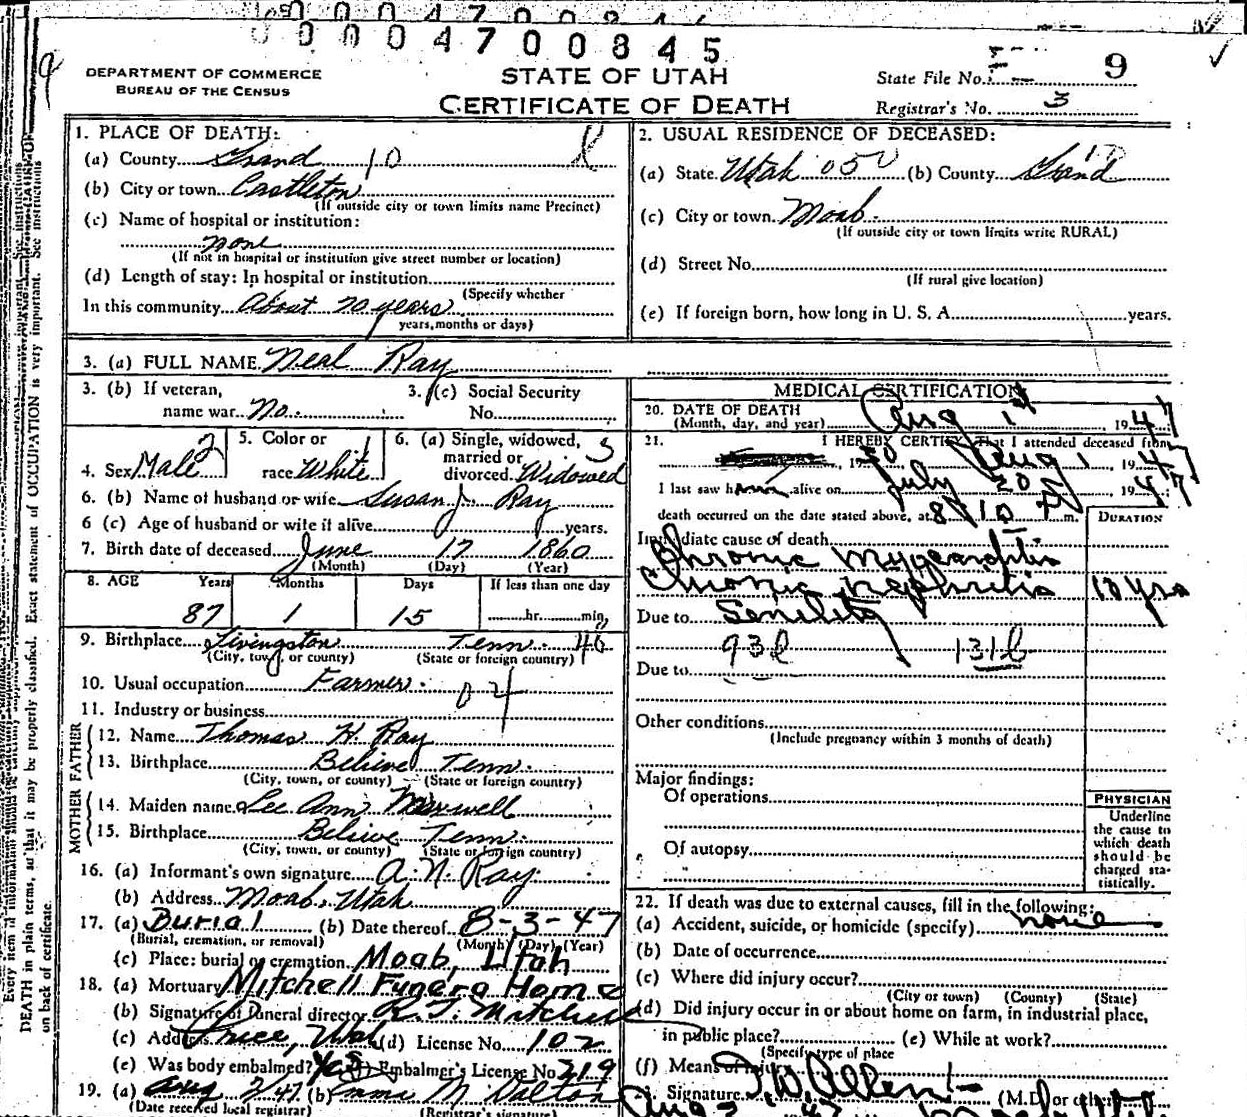 0 0 0 4 7 0 0 8 4 5
DEPARTMENT OF COMMERCE
BUREAU OF THE CENSUS
STATE OF UTAH
CERTIFICATE OF DEATH
State File No. 9
Registrar's No. 3
1. PLACE OF DEATH:
(a) County Grand 10
(b) City or town Castleton
(If outside city or town limits name Precinct)
(c) Name of hospital or institution:
none
(If not in hospital or institution give street number or location)
(d) Length of stay: In hospital or institution
(Specify whether
In this community About 70 years
years, months or days)
2. USUAL RESIDENCE OF DECEASED:
(a) State Utah 05 (b) County Grand
(c) City or town Moab.
(If outside city or town limits write RURAL)
(d) Street No.
(If rural give location)
(e) If foreign born, how long in U. S. A. years.
3. (a) FULL NAME Neal Ray
3. (b) If veteran,
name war No.
3. (c) Social Security
No.
4. Sex Male 2
5. Color or
race White 1
6. (a) Single, widowed, 3
married or
divorced Widowed
6. (b) Name of husband or wife Susan J. Ray
6 (c) Age of husband or wife if alive years.
7. Birth date of deceased June 17 1860
(Month) (Day) (Year)
8. AGE Years Months Days If less than one day
87 1 15 hr. min.
9. Birthplace Livingston Tenn. 46
(City, town, or county) (State or foreign country)
10. Usual occupation Farmer. 04
11. Industry or business
FATHER
12. Name Thomas H. Ray
13. Birthplace Belive Tenn.
(City, town, or county) (State or foreign country)
MOTHER
14. Maiden name Lee Ann Maxwell
15. Birthplace Belive Tenn.
(City, town, or county) (State or foreign country)
16. (a) Informant's own signature A. N. Ray
(b) Address Moab, Utah
17. (a) Burial (b) Date thereof 8-3-47
(Burial, cremation, or removal) (Month) (Day) (Year)
(c) Place: burial or cremation Moab, Utah
18. (a) Mortuary Mitchell Funeral Home
(b) Signature of funeral director R. T. Mitchell
(c) Address Price, Utah (d) License No. 102
(e) Was body embalmed? Yes (f) Embalmer's License No. 219
19. (a) Aug 2/47 (b) M. Dalton
(Date received local registrar) (Registrar's signature)
MEDICAL CERTIFICATION
20. DATE OF DEATH Aug 1st 1947
(Month, day, and year)
21. I HEREBY CERTIFY That I attended deceased from
, 19 to Aug 1, 1947
I last saw him alive on July 20, 1947
death occurred on the date stated above, at 8 10 m.
DURATION
Immediate cause of death
Chronic Myocarditis
Chronic nephritis 10 yrs
Due to Senility
93d 131b
Due to
Other conditions
(Include pregnancy within 3 months of death)
Major findings:
Of operations
Of autopsy
PHYSICIAN
Underline
the cause to
which death
should be
charged sta-
tistically.
22. If death was due to external causes, fill in the following:
(a) Accident, suicide, or homicide (specify) none
(b) Date of occurrence
(c) Where did injury occur?
(City or town) (County) (State)
(d) Did injury occur in or about home on farm, in industrial place,
in public place? (e) While at work?
(Specify type of place
(f) Means of injury
Signature I. W. Allen (M.D. or other)
Every item of information should be
DEATH in plain terms, so that it may be properly classified. Exact statement of OCCUPATION is very important. See instructions
on back of certificate.